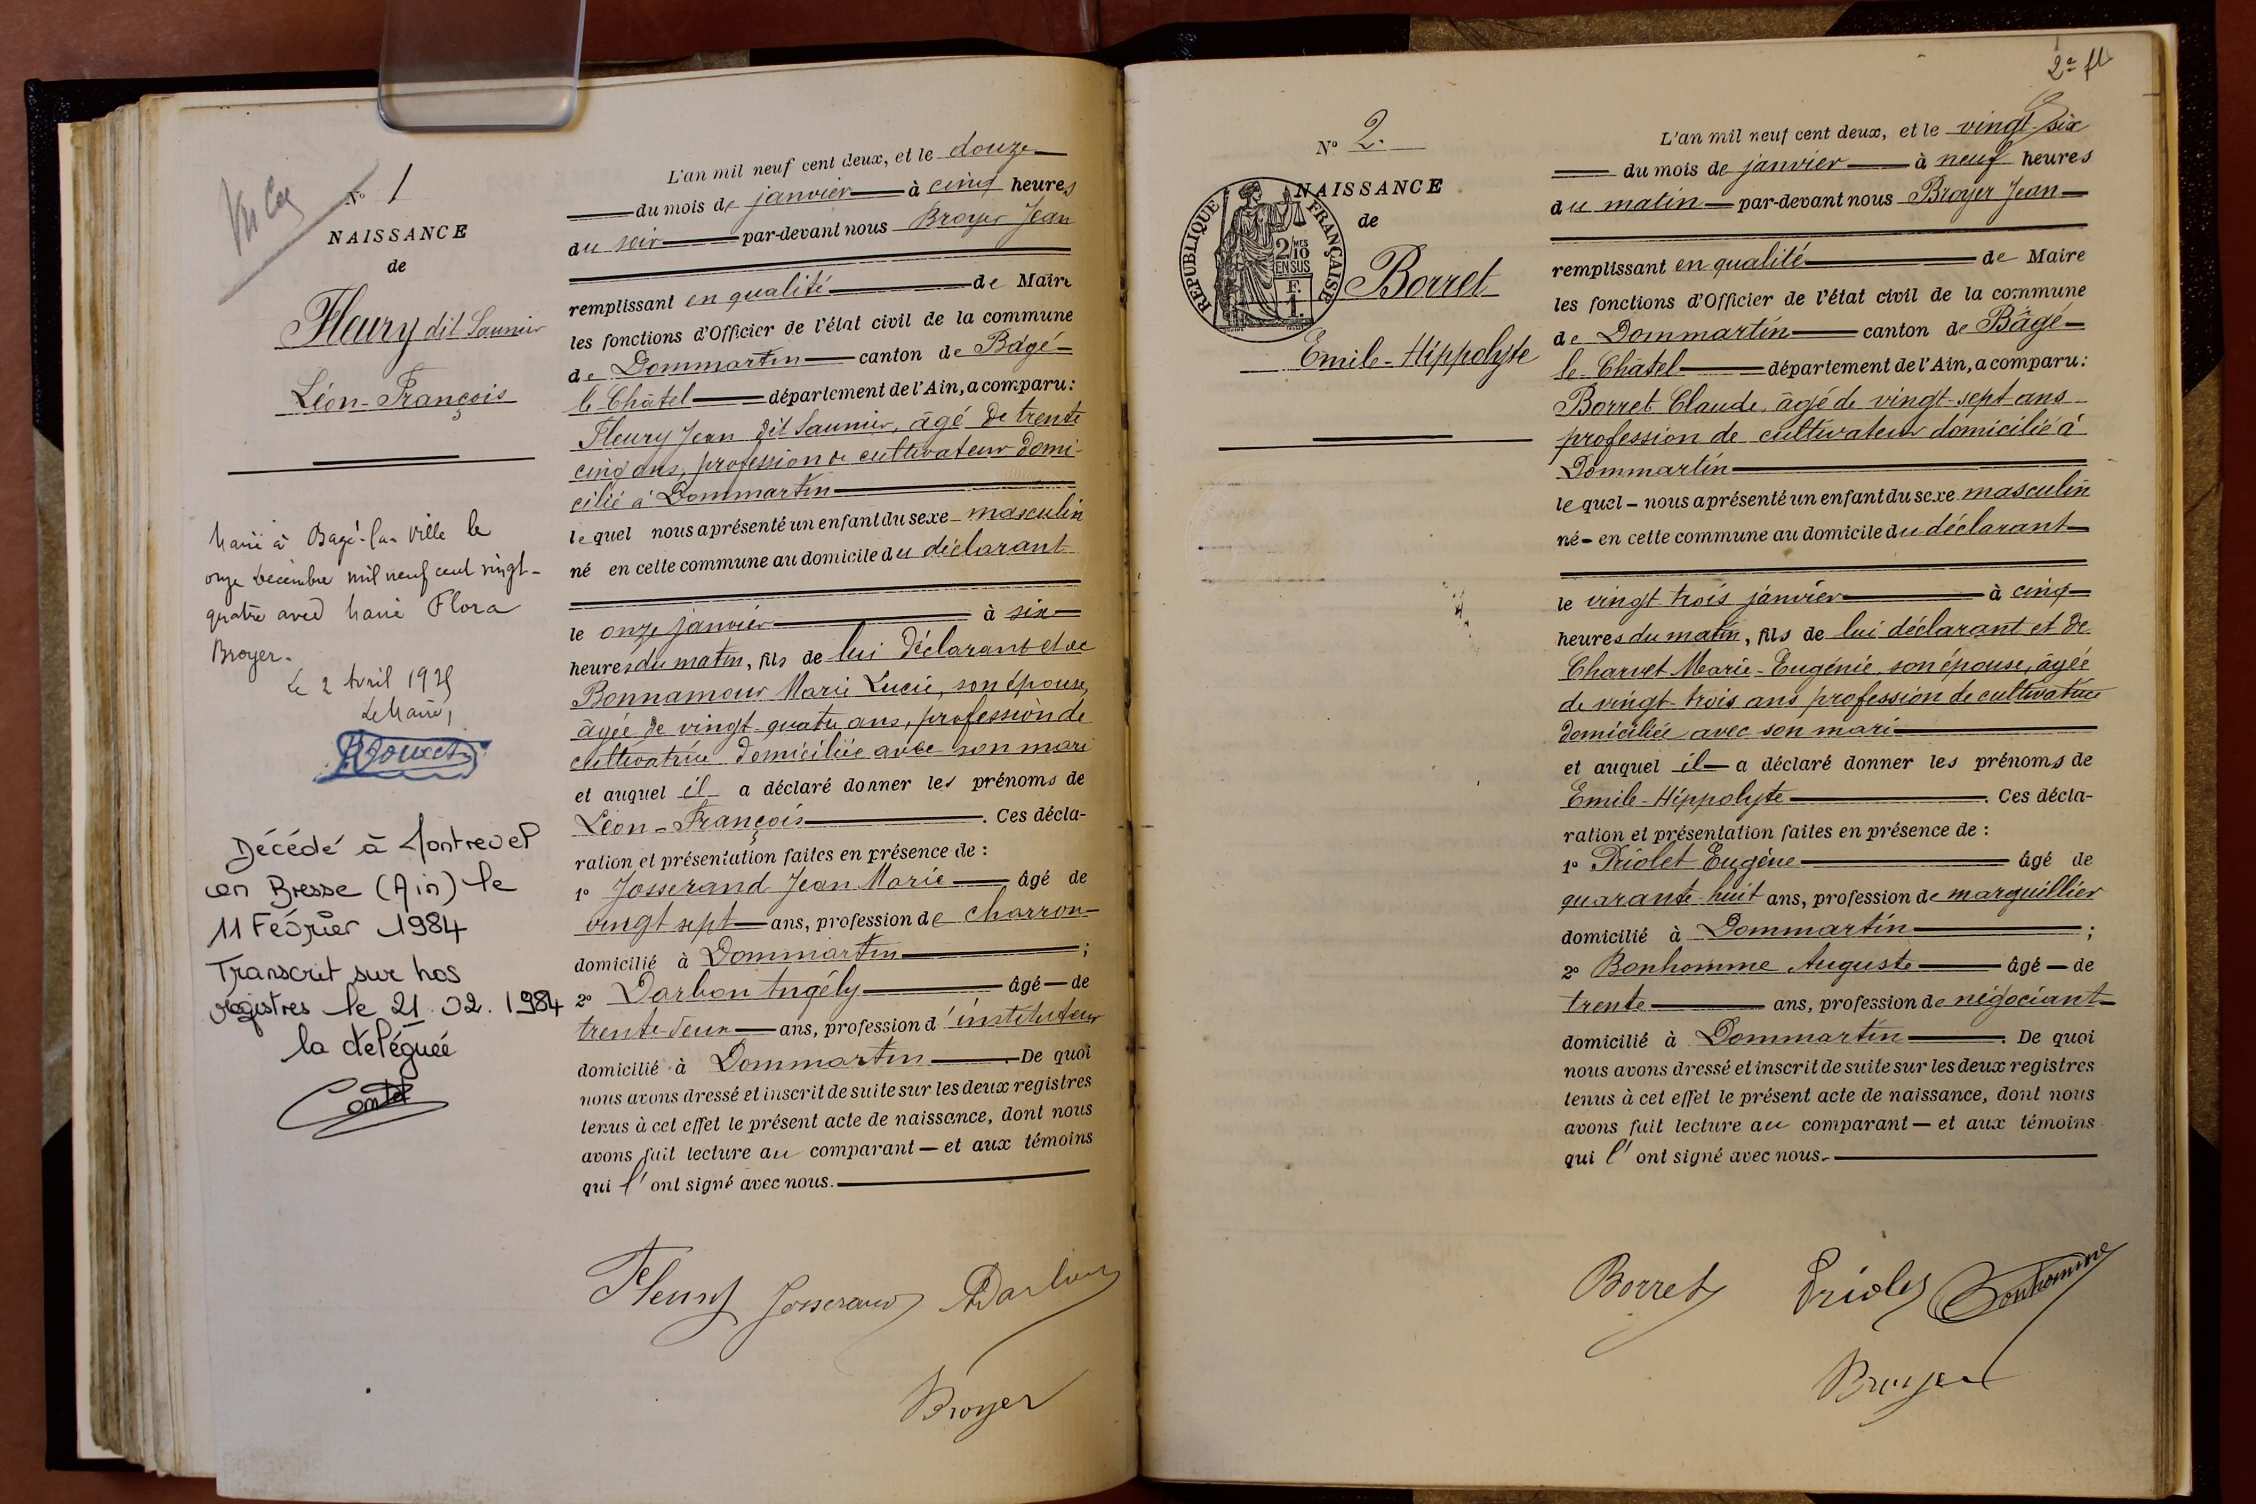 N° 1
NAISSANCE
de
Fleury dit Saunier
Léon-François
Marié à Bagé-la-ville le
onze décembre mil neuf cent vingt-
quatre avec Marie Flora
Broyer.
Le 2 Avril 1925
Le Maire,
Décédé à Montrevel
en Bresse (Ain) le
11 Février 1984
Transcrit sur nos
régistres le 21.02.1984
la déléguée
L'an mil neuf cent deux, et le douze
du mois de janvier à cinq heures
du soir par-devant nous Broyer Jean
remplissant en qualité de Maire
les fonctions d'Officier de l'état civil de la commune
de Dommartin canton de Bâgé-
le-Châtel département de l'Ain, a comparu:
Fleury Jean dit Saunier, âgé de trente
cinq ans, profession de cultivateur domi-
cilié à Dommartin
lequel nous a présenté un enfant du sexe masculin
né en cette commune au domicile du déclarant
le onze janvier à six
heures du matin, fils de lui déclarant et de
Bonnamour Marie Lucie, son épouse,
âgée de vingt-quatre ans, profession de
cultivatrice domiciliée avec son mari
et auquel il a déclaré donner les prénoms de
Léon-François. Ces décla-
ration et présentation faites en présence de :
1° Josserand Jean Marie âgé de
vingt sept ans, profession de charron
domicilié à Dommartin ;
2° Darbon Angély âgé de
trente-deux ans, profession d'instituteur
domicilié à Dommartin. De quoi
nous avons dressé et inscrit de suite sur les deux registres
tenus à cet effet le présent acte de naissance, dont nous
avons fait lecture au comparant et aux témoins
qui l'ont signé avec nous.
Fleury Josserand ADarbon
Broyer
2e ft
N° 2.
NAISSANCE
de
RÉPUBLIQUE FRANÇAISE
2/10 MES
EN SUS
F.
1.
Borret
Emile-Hippolyte
L'an mil neuf cent deux, et le vingt-six
du mois de janvier à neuf heures
du matin par-devant nous Broyer Jean
remplissant en qualité de Maire
les fonctions d'Officier de l'état civil de la commune
de Dommartin canton de Bâgé-
le-Châtel département de l'Ain, a comparu:
Borret Claude, âgé de vingt-sept ans
profession de cultivateur domicilié à
Dommartin
lequel nous a présenté un enfant du sexe masculin
né en cette commune au domicile du déclarant
le vingt trois janvier à cinq
heures du matin, fils de lui déclarant et de
Charvet Marie-Eugénie, son épouse, âgée
de vingt-trois ans profession de cultivatrice
domiciliée avec son mari
et auquel il a déclaré donner les prénoms de
Emile-Hippolyte. Ces décla-
ration et présentation faites en présence de :
1° Driolet Eugène âgé de
quarante-huit ans, profession de marguillier
domicilié à Dommartin ;
2° Bonhomme Auguste âgé de
trente ans, profession de négociant
domicilié à Dommartin. De quoi
nous avons dressé et inscrit de suite sur les deux registres
tenus à cet effet le présent acte de naissance, dont nous
avons fait lecture au comparant et aux témoins
qui l'ont signé avec nous.
Borret Driolet Bonhomme
Broyer